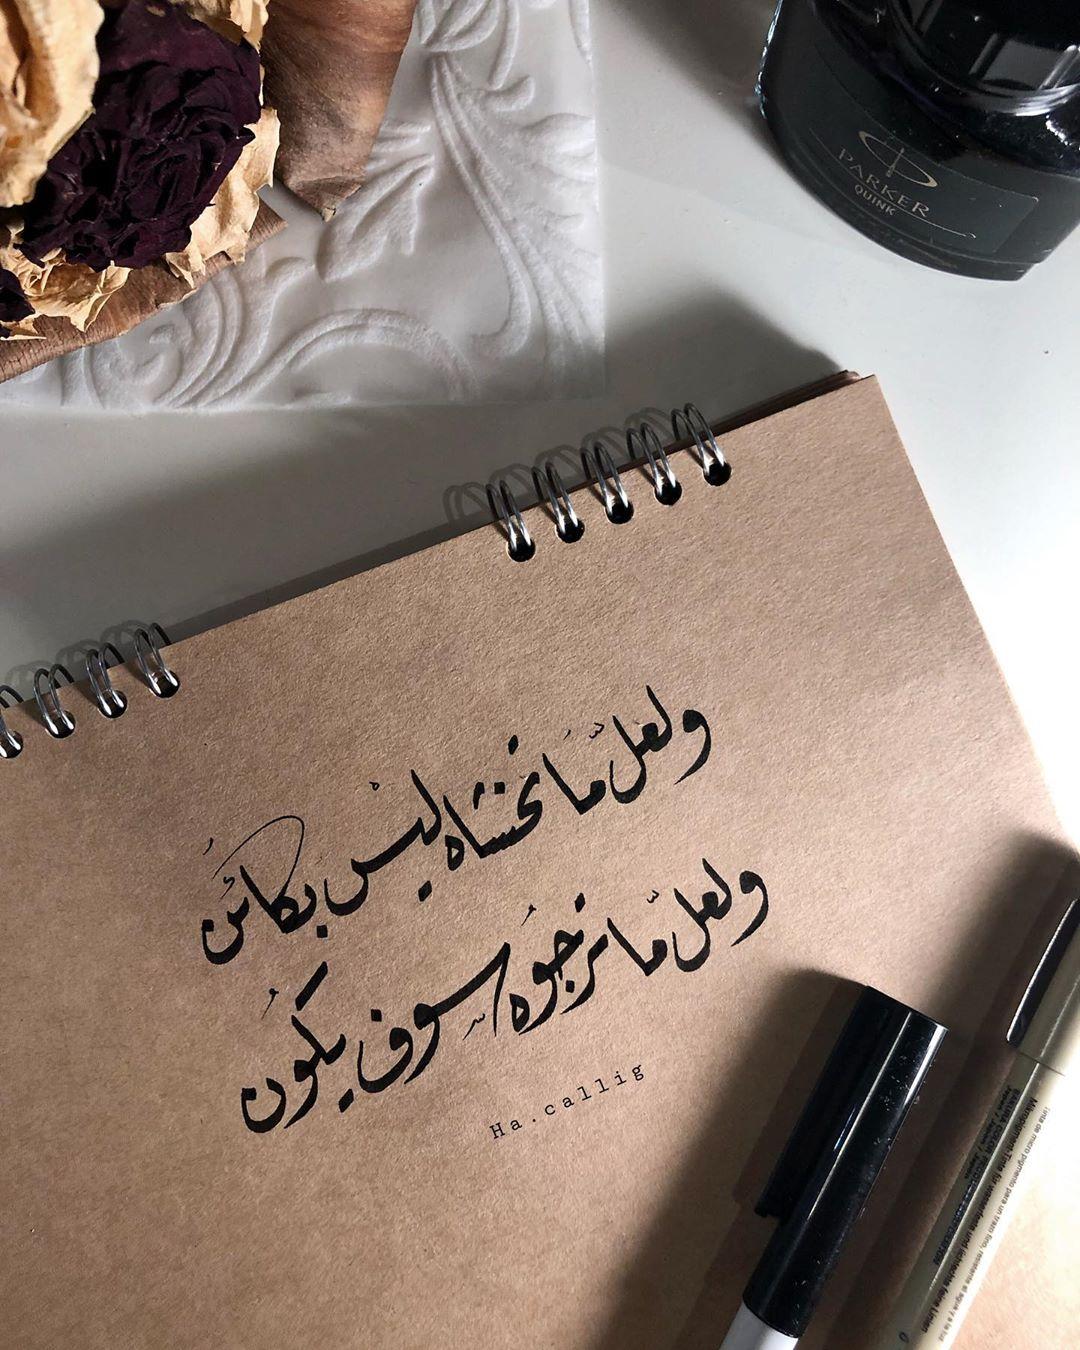 PARKER
QUINK
ولعلّ مَا نخشاه ليْس بكائنُ
ولعل مّا نرجوُه سوف يكوُن
Ha.callig